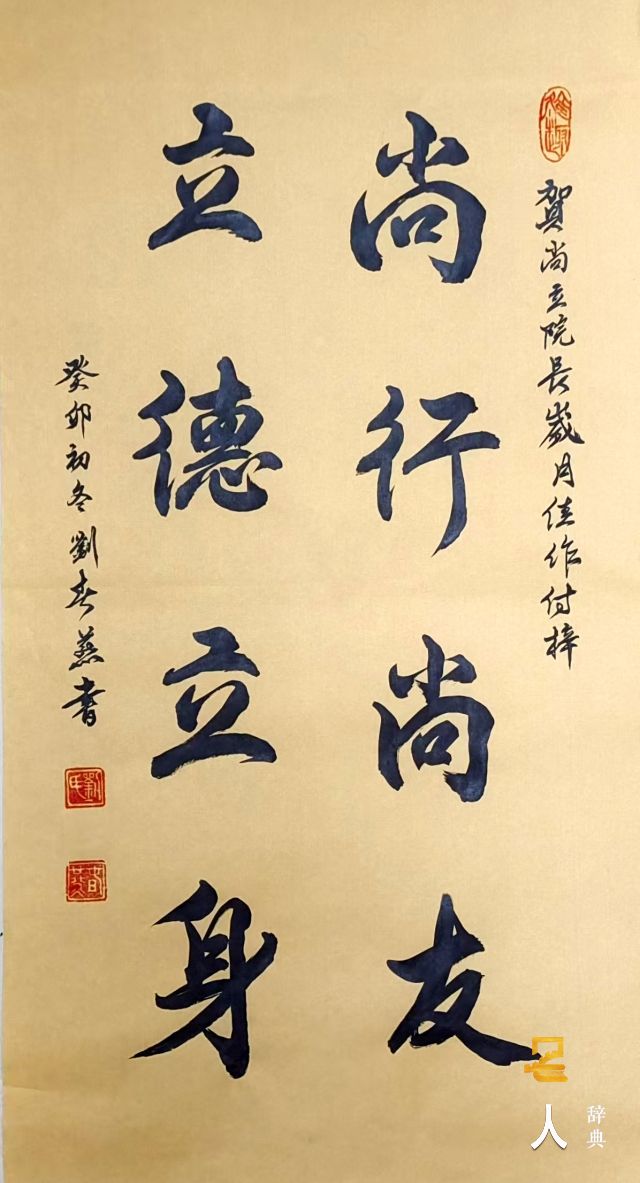 賀尚立院長歲月佳作付梓
尚行尚友
立德立身
癸卯初冬劉春燕書
劉氏
人
辞典